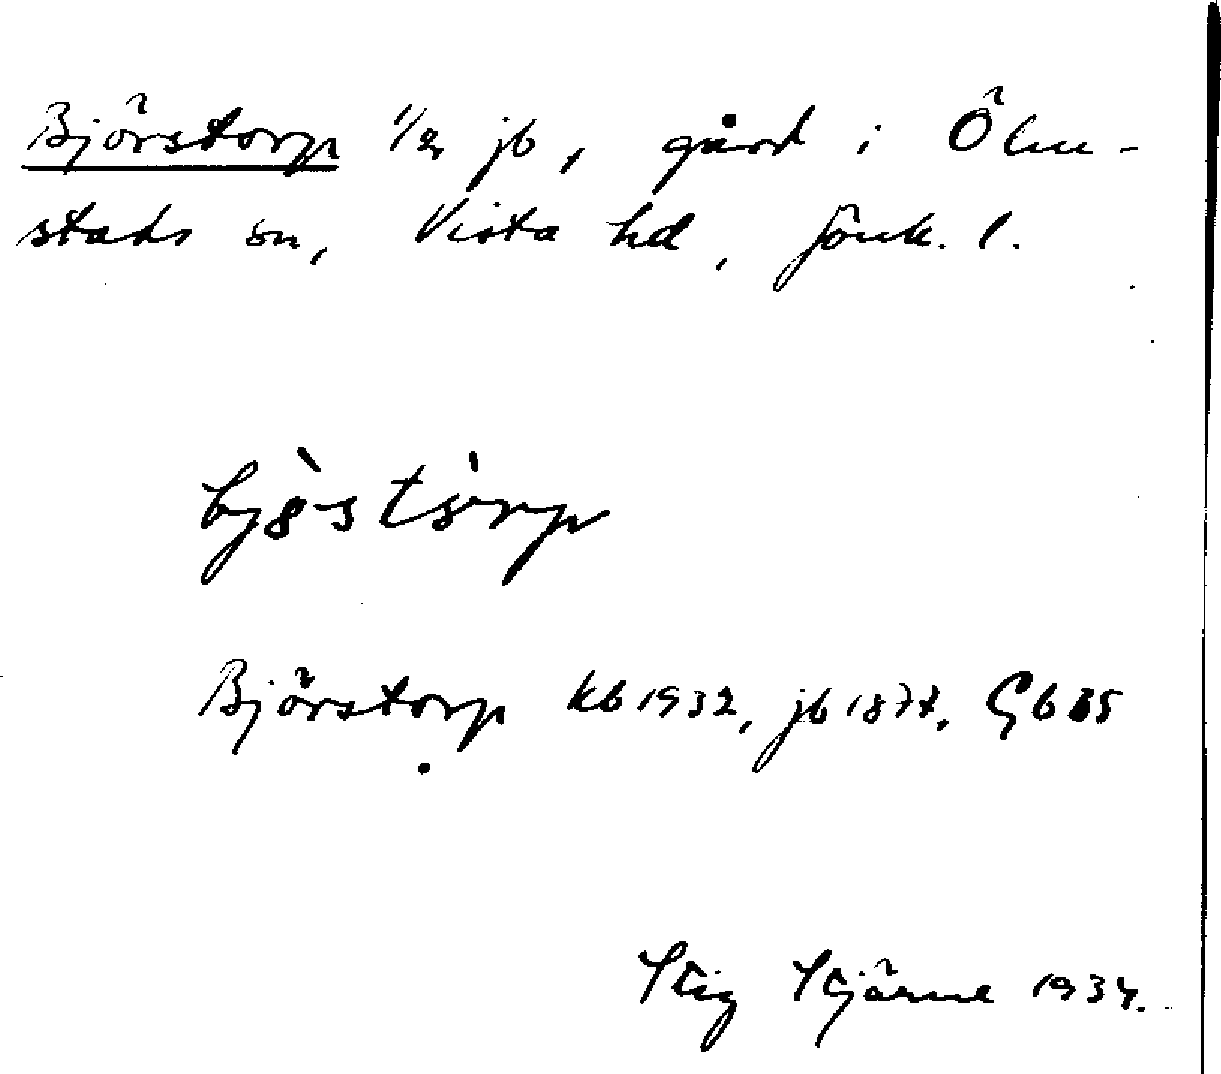 Björstorp 1/2 jb, gård i Ölm-
stads sn, Vista hd, Jönk. l.
Björstorp kb 1932, jb 1877, Gb 35
Stig Stjärne 1934.